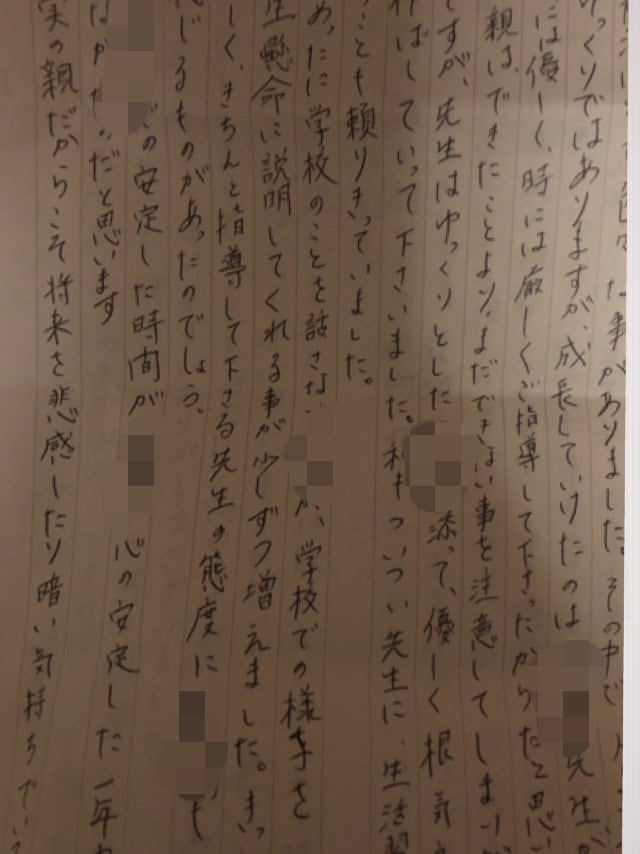 事がありました。その中で
ゆっくりではありますが、成長していけたのは 先生が
には優しく、時には厳しくご指導して下さったからだと思い
親は、できたことより、まだできない事を注意してしまいが
ですが、先生はゆっくりとした 添って、優しく根気
ばしていって下さいました。私もついつい先生に、生活習
ことも頼りきっていました。
めったに学校のことを話さない が、学校での様子を
生懸命に説明してくれる事が少しずつ増えました。きっ
しく、きちんと指導して下さる先生の態度に も
じるものがあったのでしょう。
の安定した時間が 心の安定した一年
だと思います
実の親だからこそ将来を悲感したり暗い気持ちでい